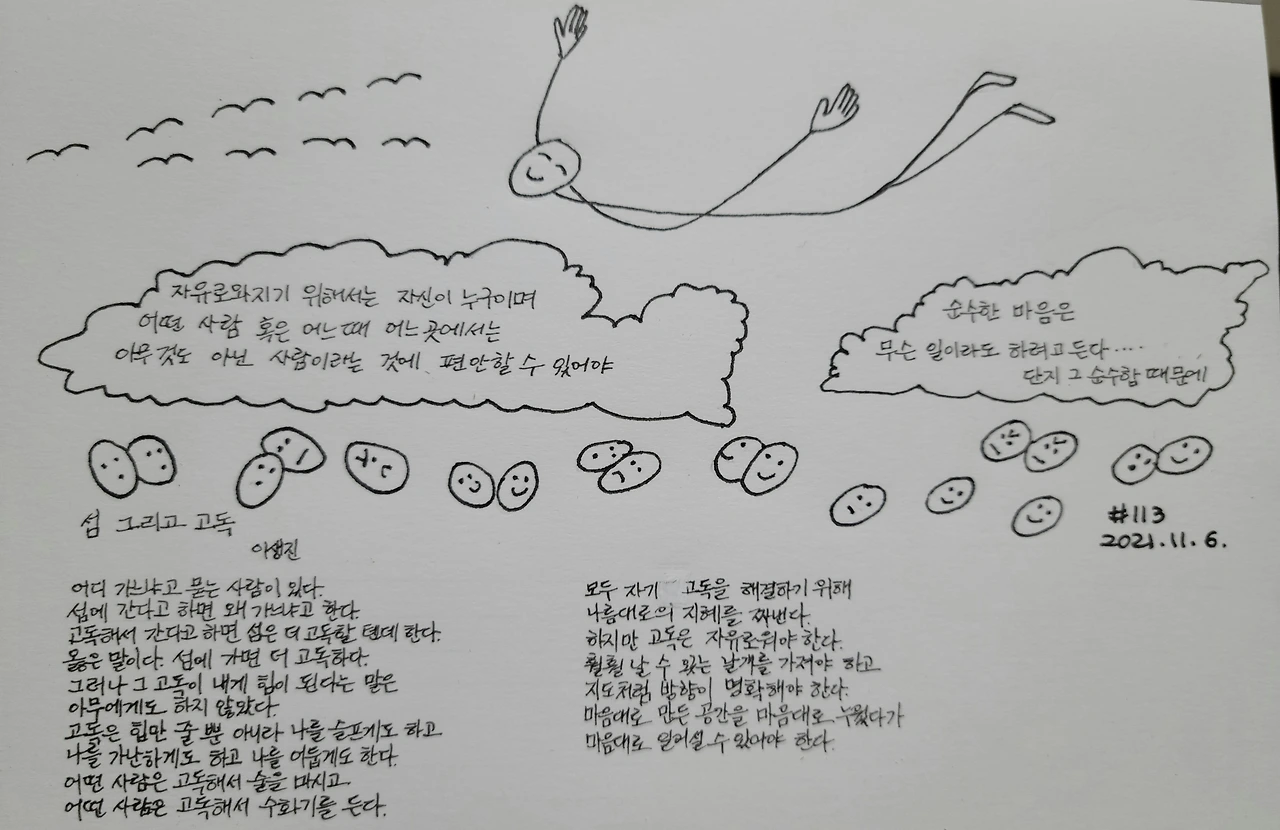 자유로와지기 위해서는 자신이 누구이며
어떤 사람 혹은 어느때 어느곳에서는
아무것도 아닌 사람이라는 것에 편안할 수 있어야
순수한 마음은
무슨 일이라도 하려고 든다....
단지 그 순수함 때문에
#113
2021.11.6.
섬 그리고 고독
이생진
어디 가느냐고 묻는 사람이 있다.
섬에 간다고 하면 왜 가느냐고 한다.
고독해서 간다고 하면 섬은 더 고독할 텐데 한다.
옳은 말이다. 섬에 가면 더 고독하다.
그러나 그 고독이 내게 힘이 된다는 말은
아무에게도 하지 않았다.
고독은 힘만 줄 뿐 아니라 나를 슬프게도 하고
나를 가난하게도 하고 나를 어둡게도 한다.
어떤 사람은 고독해서 술을 마시고
어떤 사람은 고독해서 수화기를 든다.
모두 자기 고독을 해결하기 위해
나름대로의 지혜를 짜낸다.
하지만 고독은 자유로워야 한다.
훨훨 날 수 있는 날개를 가져야 하고
지도처럼 방향이 명확해야 한다.
마음대로 만든 공간을 마음대로 누웠다가
마음대로 일어설 수 있어야 한다.